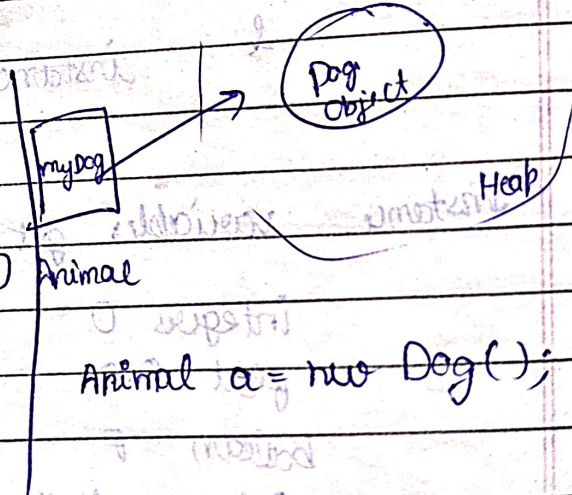 Dog
Object
myDog
Heap
Animal
Animal a = new Dog();